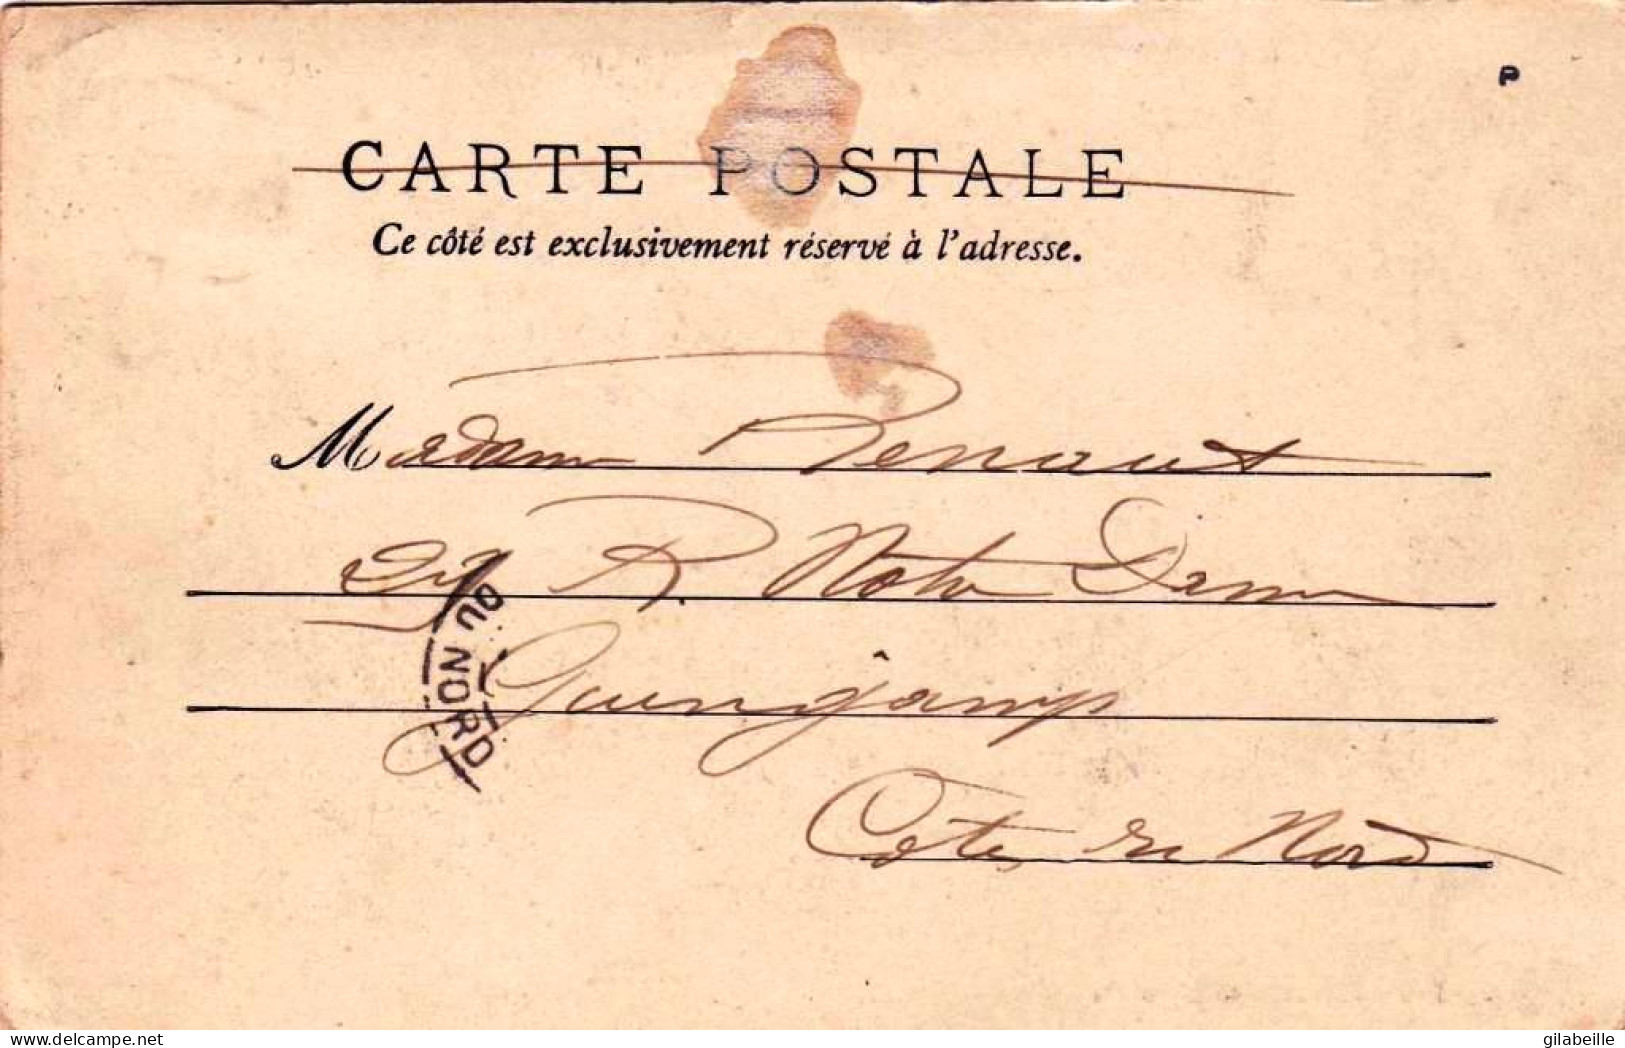 P
CARTE POSTALE
Ce côté est exclusivement réservé à l'adresse.
Madame Renault
R. Notre Dame
Guingamp
Côtes du Nord
DU NORD
www.delcampe.net
gilabeille